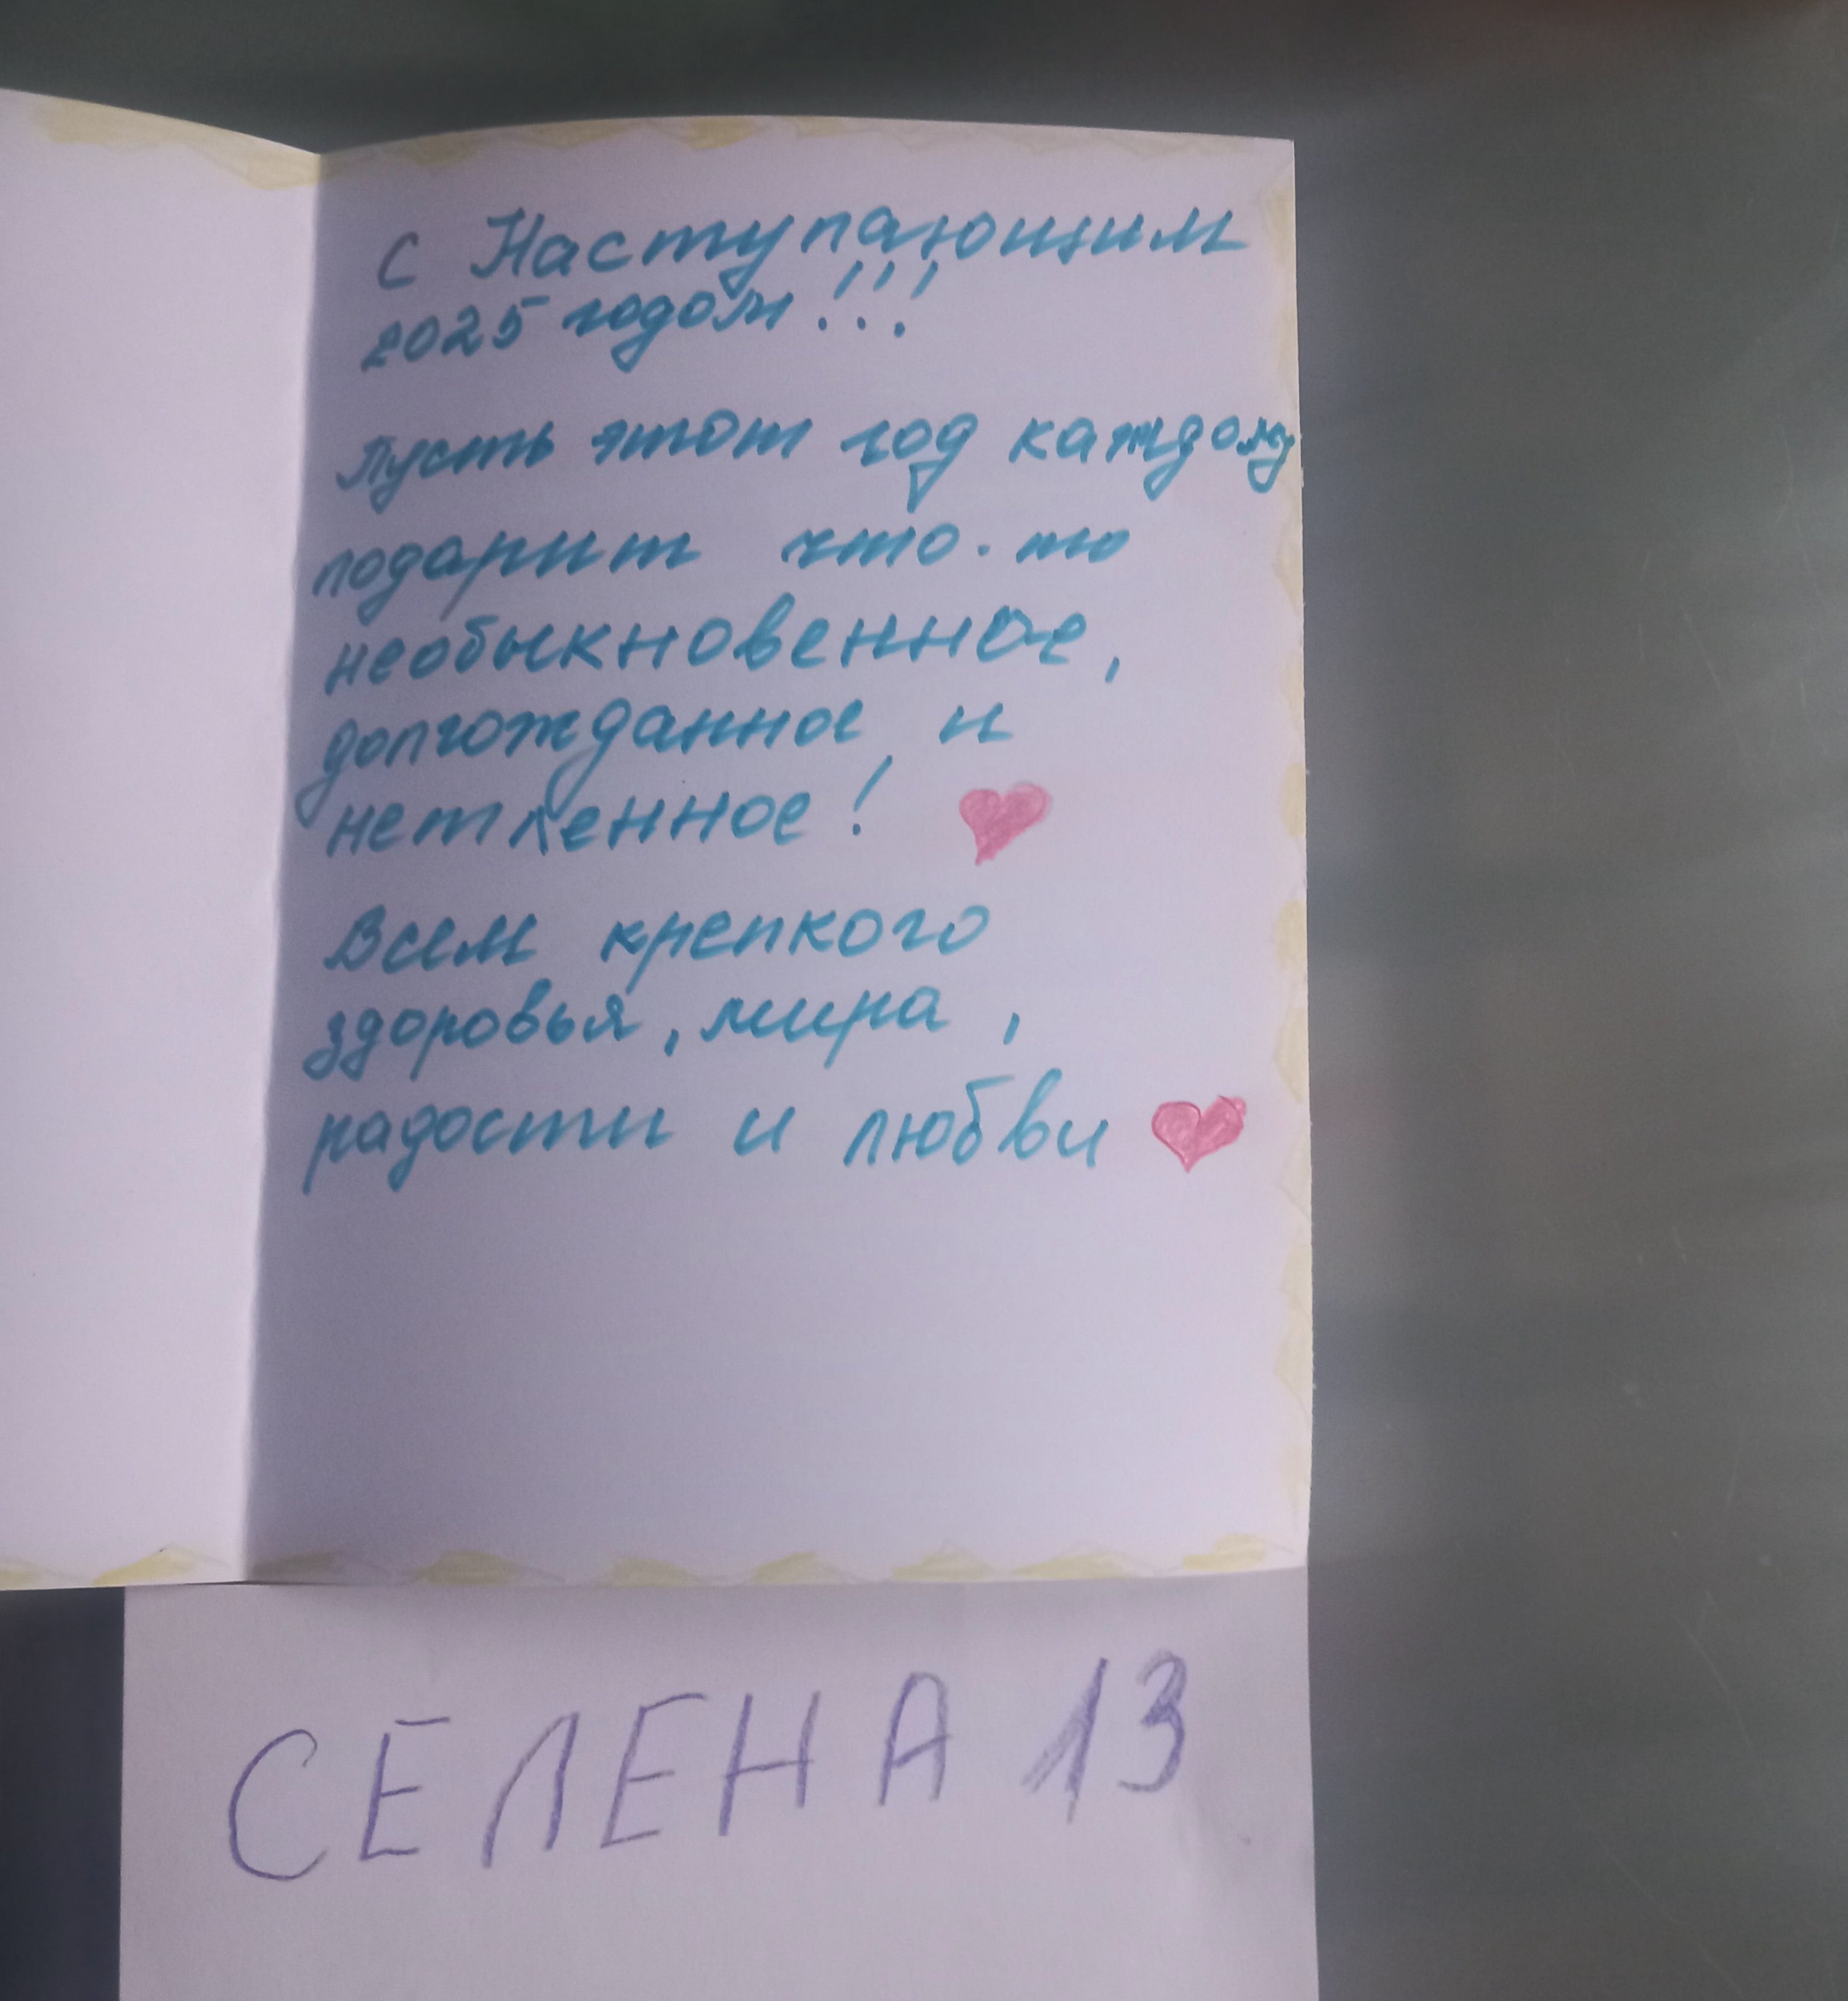 С Наступающим
2025 годом!!!
Пусть этот год каждому
подарит что-то
необыкновенное,
долгожданное и
нетленное!
Всем крепкого
здоровья, мира,
радости и любви
СЕЛЕНА 13